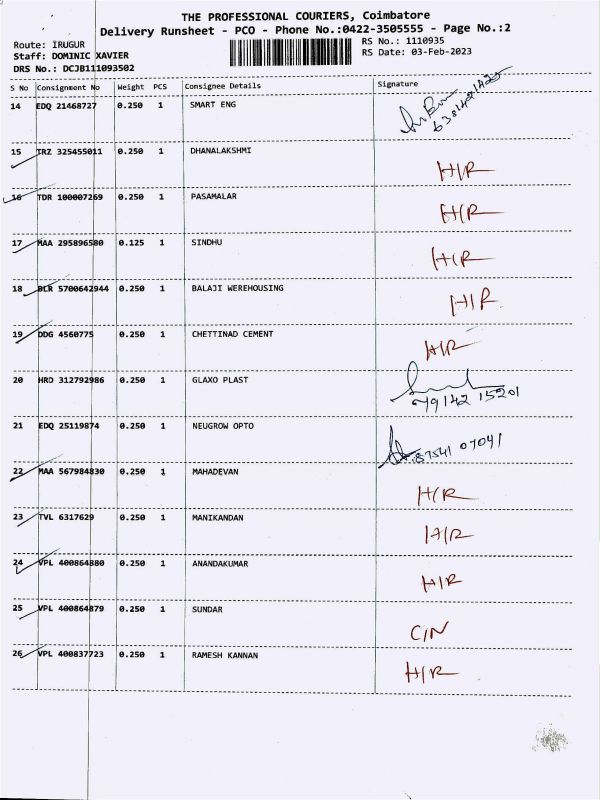 THE PROFESSIONAL COURIERS, Coimbatore
Delivery Runsheet - PCO - Phone No.:0422-3505555 - Page No.:2
Route: IRUGUR RS No.: 1110935
Staff: DOMINIC XAVIER RS Date: 03-Feb-2023
DRS No.: DCJB111093502
S No Consignment No Weight PCS Consignee Details Signature
14 EDQ 21468727 0.250 1 SMART ENG
15 TRZ 325455011 0.250 1 DHANALAKSHMI H/R
16 TDR 100007269 0.250 1 PASAMALAR H/R
17 MAA 295896580 0.125 1 SINDHU H/R
18 BLR 5700642944 0.250 1 BALAJI WEREHOUSING H/R
19 DDG 4560775 0.250 1 CHETTINAD CEMENT H/R
20 HRD 312792986 0.250 1 GLAXO PLAST 79142 15201
21 EDQ 25119874 0.250 1 NEUGROW OPTO 87541 07041
22 MAA 567984830 0.250 1 MAHADEVAN H/R
23 TVL 6317629 0.250 1 MANIKANDAN H/R
24 VPL 400864880 0.250 1 ANANDAKUMAR H/R
25 VPL 400864879 0.250 1 SUNDAR C/N
26 VPL 400837723 0.250 1 RAMESH KANNAN H/R